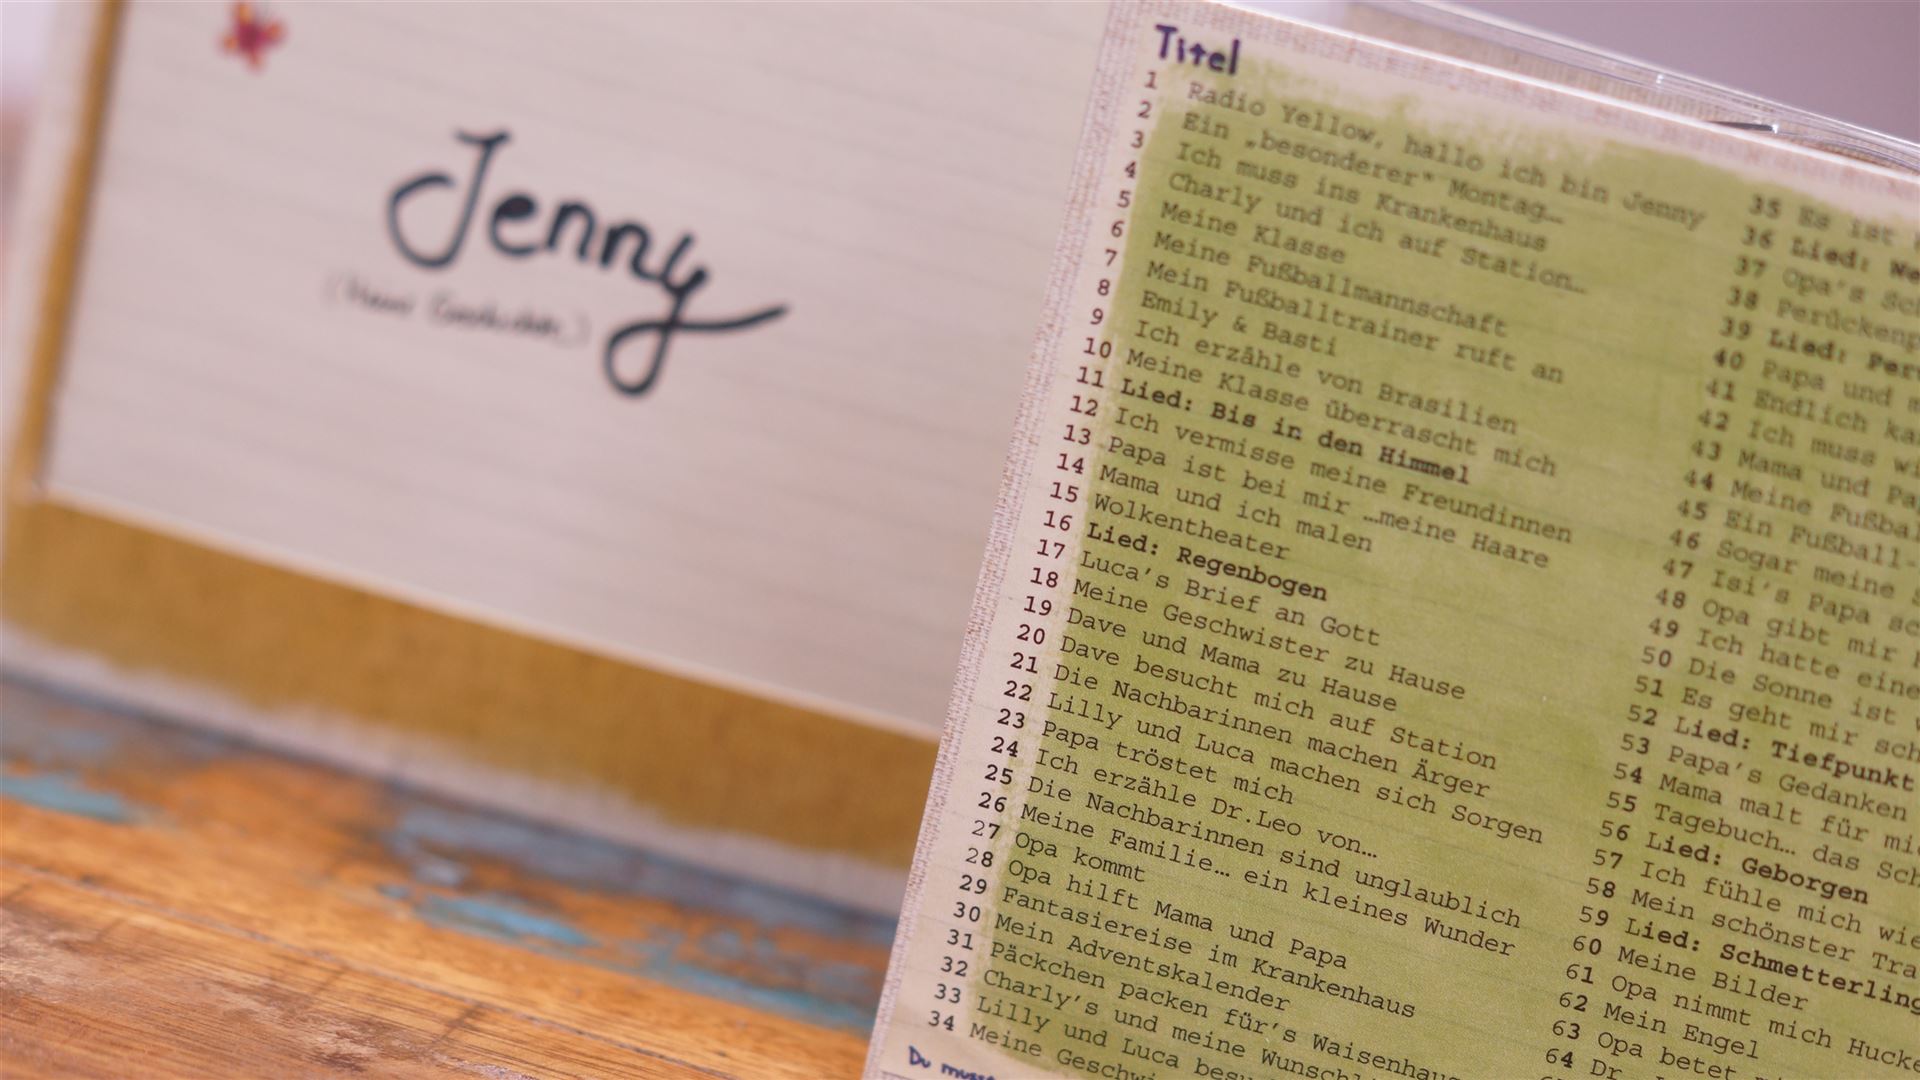 Jenny
Titel
1 Radio Yellow, hallo ich bin Jenny
2 Ein „besonderer" Montag…
3 Ich muss ins Krankenhaus
4 Charly und ich auf Station…
5 Meine Klasse
6 Meine Fußballmannschaft
7 Mein Fußballtrainer ruft an
8 Emily & Basti
9 Ich erzähle von Brasilien
10 Meine Klasse überrascht mich
11 Lied: Bis in den Himmel
12 Ich vermisse meine Freundinnen
13 Papa ist bei mir …meine Haare
14 Mama und ich malen
15 Wolkentheater
16 Lied: Regenbogen
17 Luca's Brief an Gott
18 Meine Geschwister zu Hause
19 Dave und Mama zu Hause
20 Dave besucht mich auf Station
21 Die Nachbarinnen machen Ärger
22 Lilly und Luca machen sich Sorgen
23 Papa tröstet mich
24 Ich erzähle Dr.Leo von…
25 Die Nachbarinnen sind unglaublich
26 Meine Familie… ein kleines Wunder
27 Opa kommt
28 Opa hilft Mama und Papa
29 Fantasiereise im Krankenhaus
30 Mein Adventskalender
31 Päckchen packen für's Waisenhaus
32 Charly's und meine
33 Lilly und Luca
34 Meine
Du
35 Es ist
36 Lied:
37 Opa's
38
39 Lied:
40 Papa und
41 Endlich
42 Ich muss
43 Mama und
44 Meine
45 Ein Fußball-
46 Sogar meine
47 Isi's Papa
48 Opa gibt mir
49 Ich hatte eine
50 Die Sonne ist
51 Es geht mir
52 Lied: Tiefpunkt
53 Papa's Gedanken
54 Mama malt für
55 Tagebuch… das
56 Lied: Geborgen
57 Ich fühle mich
58 Mein schönster
59 Lied:
60 Meine Bilder
61 Opa nimmt mich
62 Mein Engel
63 Opa betet
64 Dr.